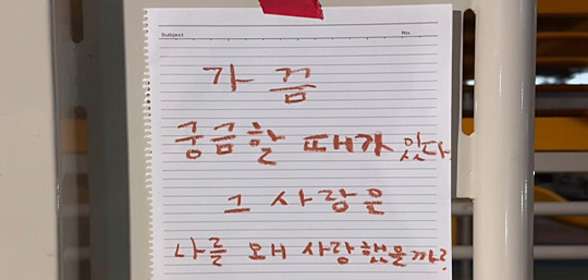 Subject No.
가끔
궁금할 때가 있다
그 사람은
나를 왜 사랑했을까?